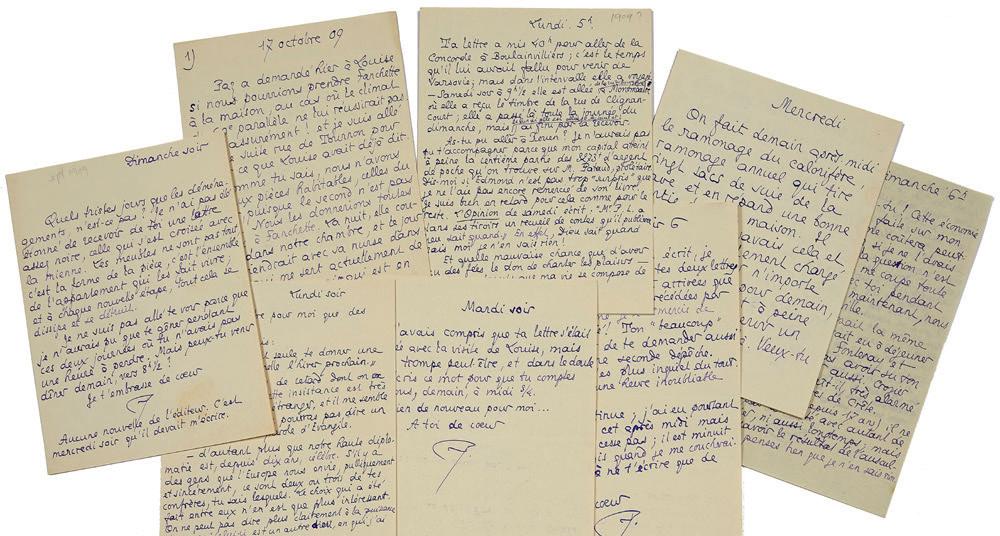 1)
17 octobre 09
Paz a demandé hier à Louise
si nous pourrions prendre Fanchette
à la maison, au cas où le climat
parallèle ne lui réussirait pas.
assurément ! et je suis allé
suite rue de Tournon pour
ce que Louise avait déjà dit.
comme tu sais, nous n'avons
pièces habitables, elles du
puisque le second n'est pas
Nous les donnerions toutes
à Fanchette. La nuit, elle cou-
dans notre chambre, et le jour
tiendrait avec sa nurse dans
me sert actuellement de
moi est en
Lundi. 5h
1909 ?
Ta lettre a mis 40h pour aller de la
Concorde à Boulainvilliers ; c'est le temps
qu'il lui aurait fallu pour venir de
Varsovie ; mais dans l'intervalle elle a voyagé.
— Samedi soir à 9h½ elle est allée à Montmartre
où elle a reçu le timbre de la rue de Clignan-
court ; elle a passé là toute la journée du
dimanche, mais j'ai fini par la recevoir.
As-tu pu aller à Rouen ? Je n'aurais pas
pu t'accompagner parce que mon capital atteint
à peine la centième partie des 3823f d'argent
de poche qu'on trouve sur M. Pataud, prolétaire.
Dis-moi si Edmond n'est pas trop "surpris" que
je ne l'aie pas encore remercié de son livre.
Je suis bien en retard pour cela comme pour
reste. L'Opinion de samedi écrit : "M. P. L. a
dans ses tiroirs un recueil de contes qu'il publiera
Dieu sait quand". En effet, Dieu sait quand
mais moi je n'en sais rien !
Et quelle mauvaise chance que d'avoir
des fées, le don de chanter les plaisirs —
que ma vie se compose de
Mercredi
On fait demain après midi
le ramonage du calorifère,
ramonage annuel qui tire
vingt sacs de suie de la
et en répand une bonne
maison. Il
savais cela et
changé
n'importe
pour demain,
à peine
un
Veux-tu
Dimanche 6h
Cette économie
faite sur mon
me coûtera peut
si je ne l'avais
la question n'est
me coupe toute
toi pendant
maintenant, nous
la même
eu à déjeuner
Fontenay est
avoir vu ton
aussi, croyait
très alarmé
de Crète.
depuis 12 ans), il ne
avec autant de
ni aussi longtemps ; mais
savoir le résultat de l'assaut.
penses bien que je n'en sais rien
sept 1909
Dimanche soir
Quels tristes jours que les déména-
gements, n'est-ce pas ? Je n'ai pas été
étonné de recevoir de toi une lettre
assez noire, celle qui s'est croisée avec
la mienne. Les meubles ne sont pas tout
c'est la forme de la pièce, c'est l'ensemble
de l'appartement qui les fait vivre ;
et à chaque nouvelle étape, tout cela se
dissipe et se détruit.
Je ne suis pas allé te voir parce que
je n'aurais pu que te gêner pendant
ces deux journées où tu n'avais pas
une heure à perdre. Mais peux-tu venir
dîner demain, vers 8h½ ?
Je t'embrasse de cœur
Aucune nouvelle de l'éditeur. C'est
mercredi soir qu'il devait m'écrire.
Lundi soir
pour moi que des
seule te donner une
l'hiver prochain."
de retard dont on
insistance est très
étrange, et il me semble
pourras pas dire un
parole d'Évangile.
— d'autant plus que notre haute diplo-
matie est, depuis dix ans, célèbre. S'il y a
des gens que l'Europe nous envie, publiquement
et sincèrement, ce sont deux ou trois de tes
confrères, tu sais lesquels. Le choix qui a été
fait entre eux n'en est que plus intéressant.
On ne peut pas dire plus clairement à la puissance
est un autre dieu, en qui j'ai
Mardi soir
avais compris que ta lettre s'était
avec la visite de Louise, mais
trompe peut-être, et dans le doute
écris ce mot pour que tu comptes
demain, à midi ¾.
de nouveau pour moi...
A toi de cœur
6
écrit, je
tes deux lettres
arrivées que
précédées par
minuit de
! Ton "beaucoup"
de te demander aussi
seconde dépêche.
plus inquiet du tout.
une heure inoubliable
; j'ai eu pourtant
cet après midi mais
pas ; il est minuit
quand je me couchais.
ne t'écrire que de
cœur